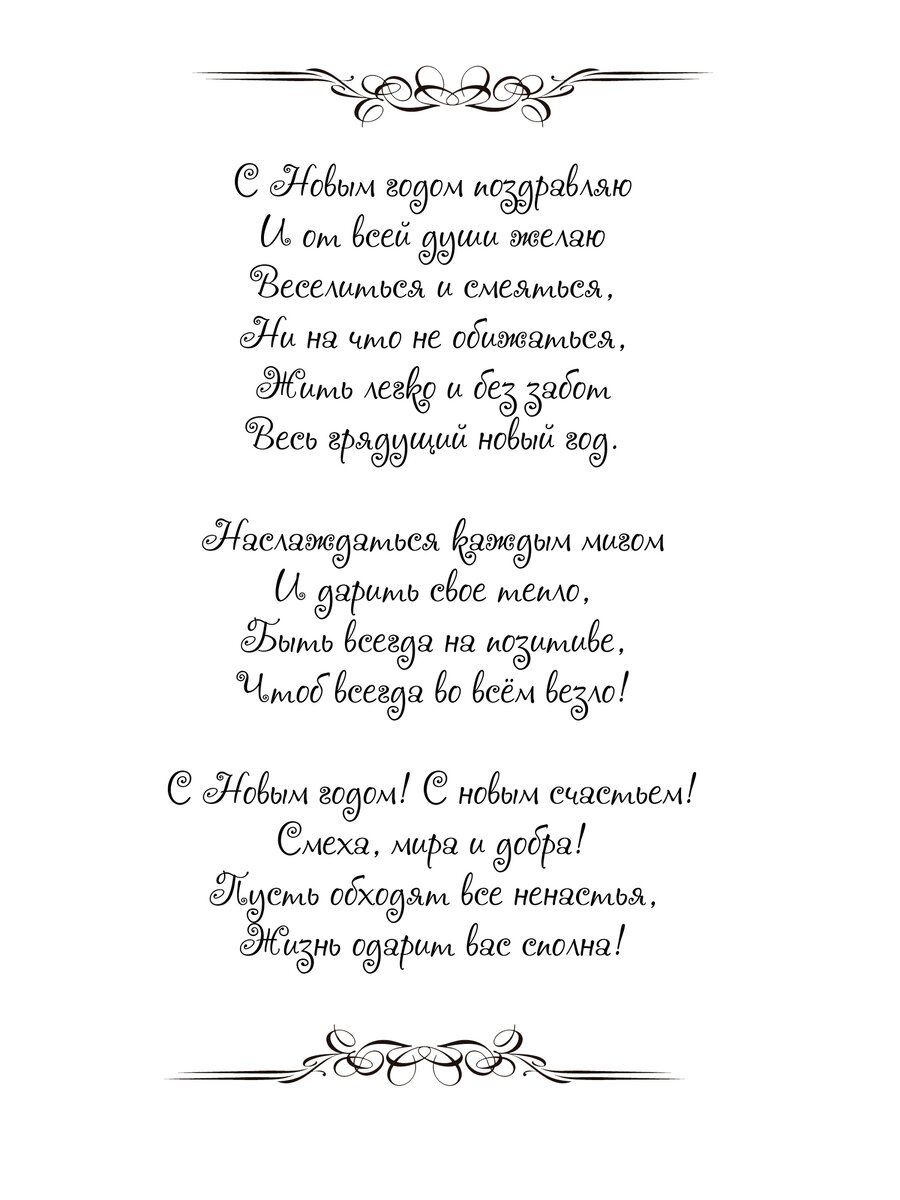 С Новым годом поздравляю
И от всей души желаю
Веселиться и смеяться,
Ни на что не обижаться,
Жить легко и без забот
Весь грядущий новый год.
Наслаждаться каждым мигом
И дарить свое тепло,
Быть всегда на позитиве,
Чтоб всегда во всём везло!
С Новым годом! С новым счастьем!
Смеха, мира и добра!
Пусть обходят все ненастья,
Жизнь одарит вас сполна!